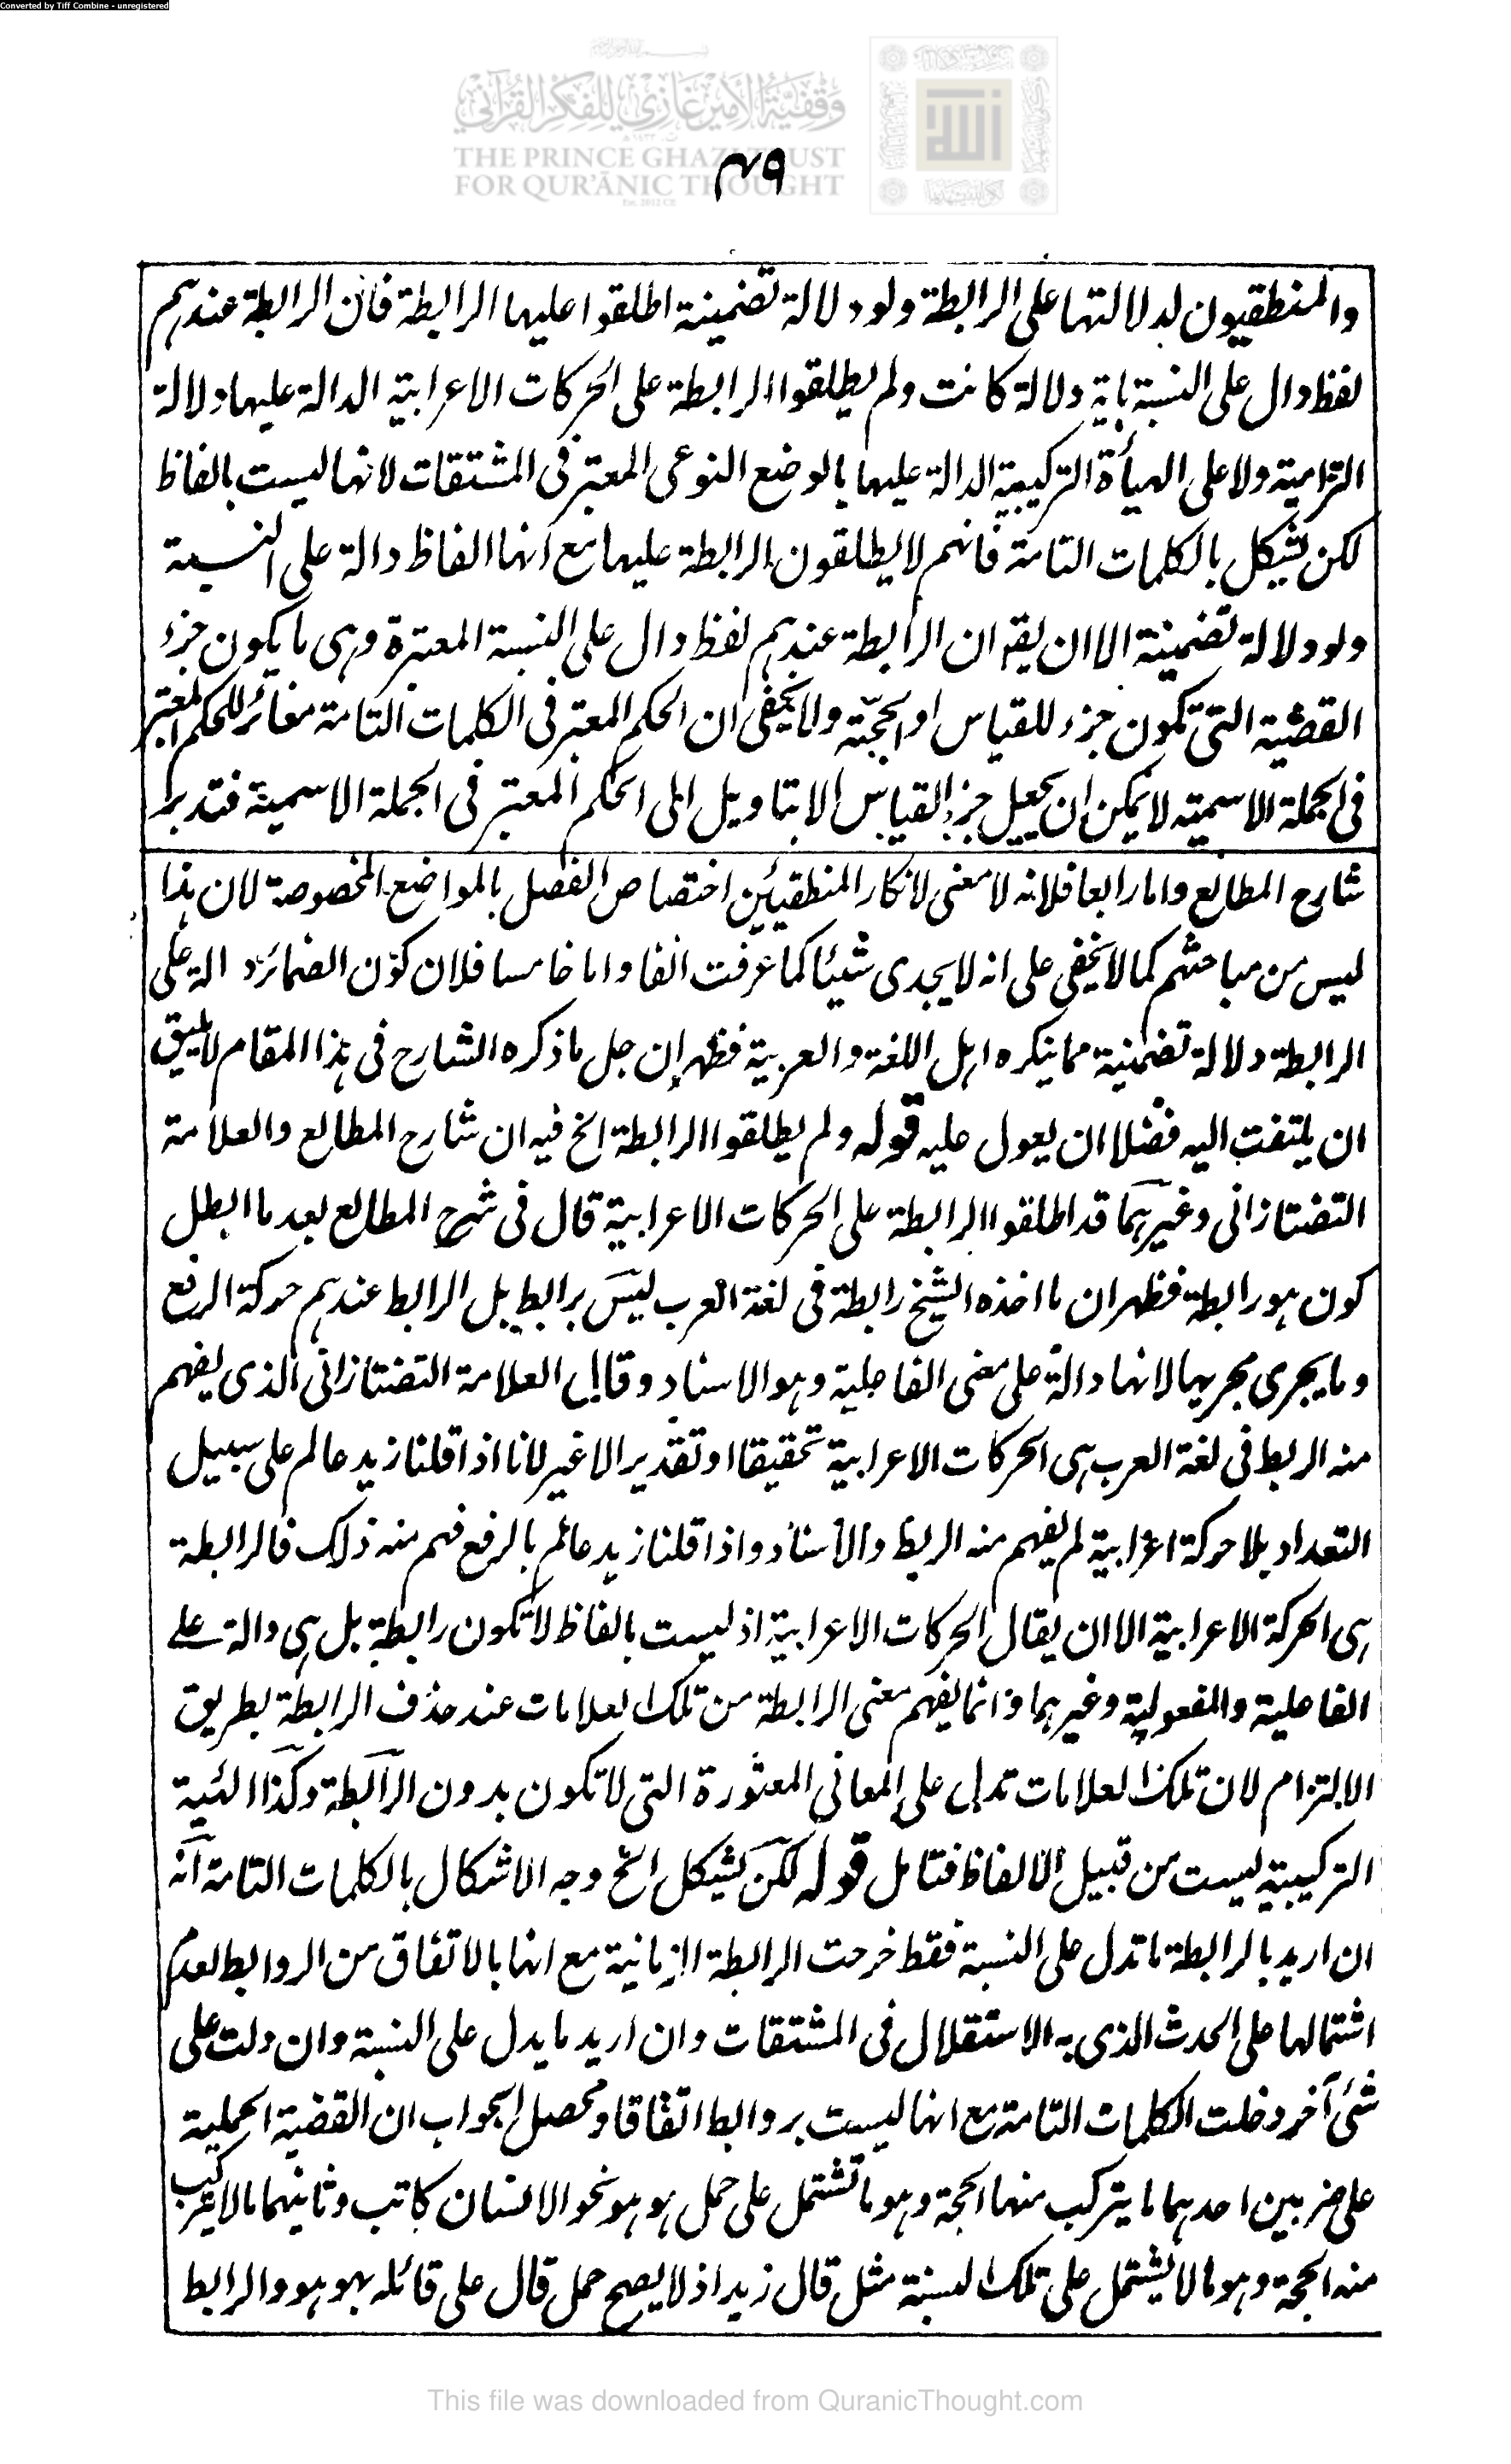 Converted by Tiff Combine - unregistered
وقفية الأمير غازي للفكر القرآني
THE PRINCE GHAZI TRUST
FOR QUR'ĀNIC THOUGHT
٣٩
والمنطقيون لدلالتها على الرابطة ولو دلالة تضمينة اطلقوا عليها الرابطة فان الرابطة عندهم
لفظ دال على النسبة باية دلالة كانت ولم يطلقوا الرابطة على الحركات الاعرابية الدالة عليها دلالة
التزامية ولا على الهيأة التركيبية الدالة عليها بالوضع النوعى المعتبر فى المشتقات لانها ليست بالفاظ
لكن يشكل بالكلمات التامة فانهم لا يطلقون الرابطة عليها مع انها الفاظ دالة على النسبة
ولو دلالة تضمينة الا ان يقه ان الرابطة عندهم لفظ دال على النسبة المعتبرة وهى ما يكون جزء
القضية التى تكون جزء للقياس او الحجة ولا يخفى ان الحكم المعتبر فى الكلمات التامة مغائر للحكم المعتبر
فى الجملة الاسمية لا يمكن ان يجعل جزء القياس الا بتاويل الى الحكم المعتبر فى الجملة الاسمية فتدبر
شارح المطالع واما رابعا فلانه لا معنى لانكار المنطقيين اختصاص الفصل بالمواضع المخصوصة لان هذا
ليس من مباحثهم كما لا يخفى على انه لا يجدى شيئا كما عرفت انفا واما خامسا فلان كون الضمائر دالة على
الرابطة دلالة تضمنية مما ينكره اهل اللغة والعربية فظهر ان جل ما ذكره الشارح فى هذا المقام لا يليق
ان يلتفت اليه فضلا ان يعول عليه قوله ولم يطلقوا الرابطة الخ فيه ان شارح المطالع والعلامة
التفتازانى وغيرهما قد اطلقوا الرابطة على الحركات الاعرابية قال فى شرح المطالع بعد ما ابطل
كون هو رابطة فظهر ان ما اخذه الشيخ رابطة فى لغة العرب ليس برابط بل الرابط عندهم حركة الرفع
وما يجرى مجريها لانها دالة على معنى الفاعلية وهو الاسناد وقال العلامة التفتازانى الذى يفهم
منه الربط فى لغة العرب هى الحركات الاعرابية تحقيقا او تقديرا لا غير لانا اذا قلنا زيد عالم على سبيل
التعداد بلا حركة اعرابية لم يفهم منه الربط والاسناد واذا قلنا زيد عالم بالرفع فهم منه ذلك فالرابطة
هى الحركة الاعرابية الا ان يقال الحركات الاعرابية اذ ليست بالفاظ لا تكون رابطة بل هى دالة على
الفاعلية والمفعولية وغيرهما وانما يفهم معنى الرابطة من تلك العلامات عند حذف الرابطة بطريق
الالتزام لان تلك العلامات تدل على المعانى المعثورة التى لا تكون بدون الرابطة وكذا الهيئة
التركيبية ليست من قبيل الالفاظ فتامل قوله لكن يشكل الخ وجه الاشكال بالكلمات التامة انه
ان اريد بالرابطة ما تدل على النسبة فقط خرجت الرابطة الزمانية مع انها بالاتفاق من الروابط لعدم
اشتمالها على الحدث الذى به الاستقلال فى المشتقات وان اريد ما يدل على النسبة وان دلت على
شئ آخر دخلت الكلمات التامة مع انها ليست بروابط اتفاقا ومحصل الجواب ان القضية الحملية
على ضربين احدهما ما يتركب منها الحجة وهو ما تشتمل على حمل هو هو نحو الانسان كاتب وثانيهما ما لا يتركب
منه الحجة وهو ما لا يشتمل على تلك النسبة مثل قال زيد اذ لا يصح حمل قال على قائله بهو هو والرابط
This file was downloaded from QuranicThought.com